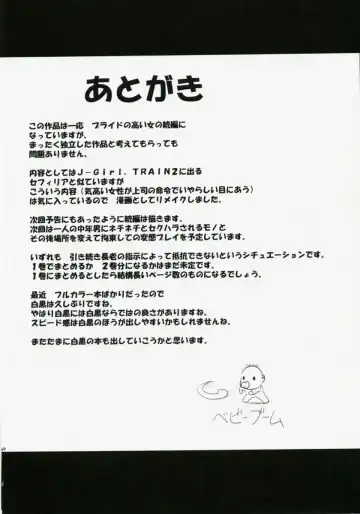 あとがき
この作品は一応　プライドの高い女の続編に
なっていますが、
まったく独立した作品と考えてもらっても
問題ありません。
内容としてはJ-Girl. TRAIN2に出る
セフィリアと似ていますが
こういう内容（気高い女性が上司の命令でいやらしい目にあう）
は気に入っているので　漫画としてリメイクしました。
次回予告にもあったように続編は描きます。
次回は一人の中年男にネチネチとセクハラされるモノと
その後場所を変えて拘束しての変態プレイを予定しています。
いずれも　引き続き長老の指示によって抵抗できないというシチュエーションです。
1巻でまとめるか　2巻分になるかはまだ未定です。
1巻にまとめるとしたら結構長いページ数のものになるでしょう。
最近　フルカラー本ばかりだったので
白黒は久しぶりですね。
やはり白黒には白黒ならではの良さがありますね。
スピード感は白黒のほうが出しやすいかもしれませんね。
またたまに白黒の本も出していこうかと思います。
ベビーブーム